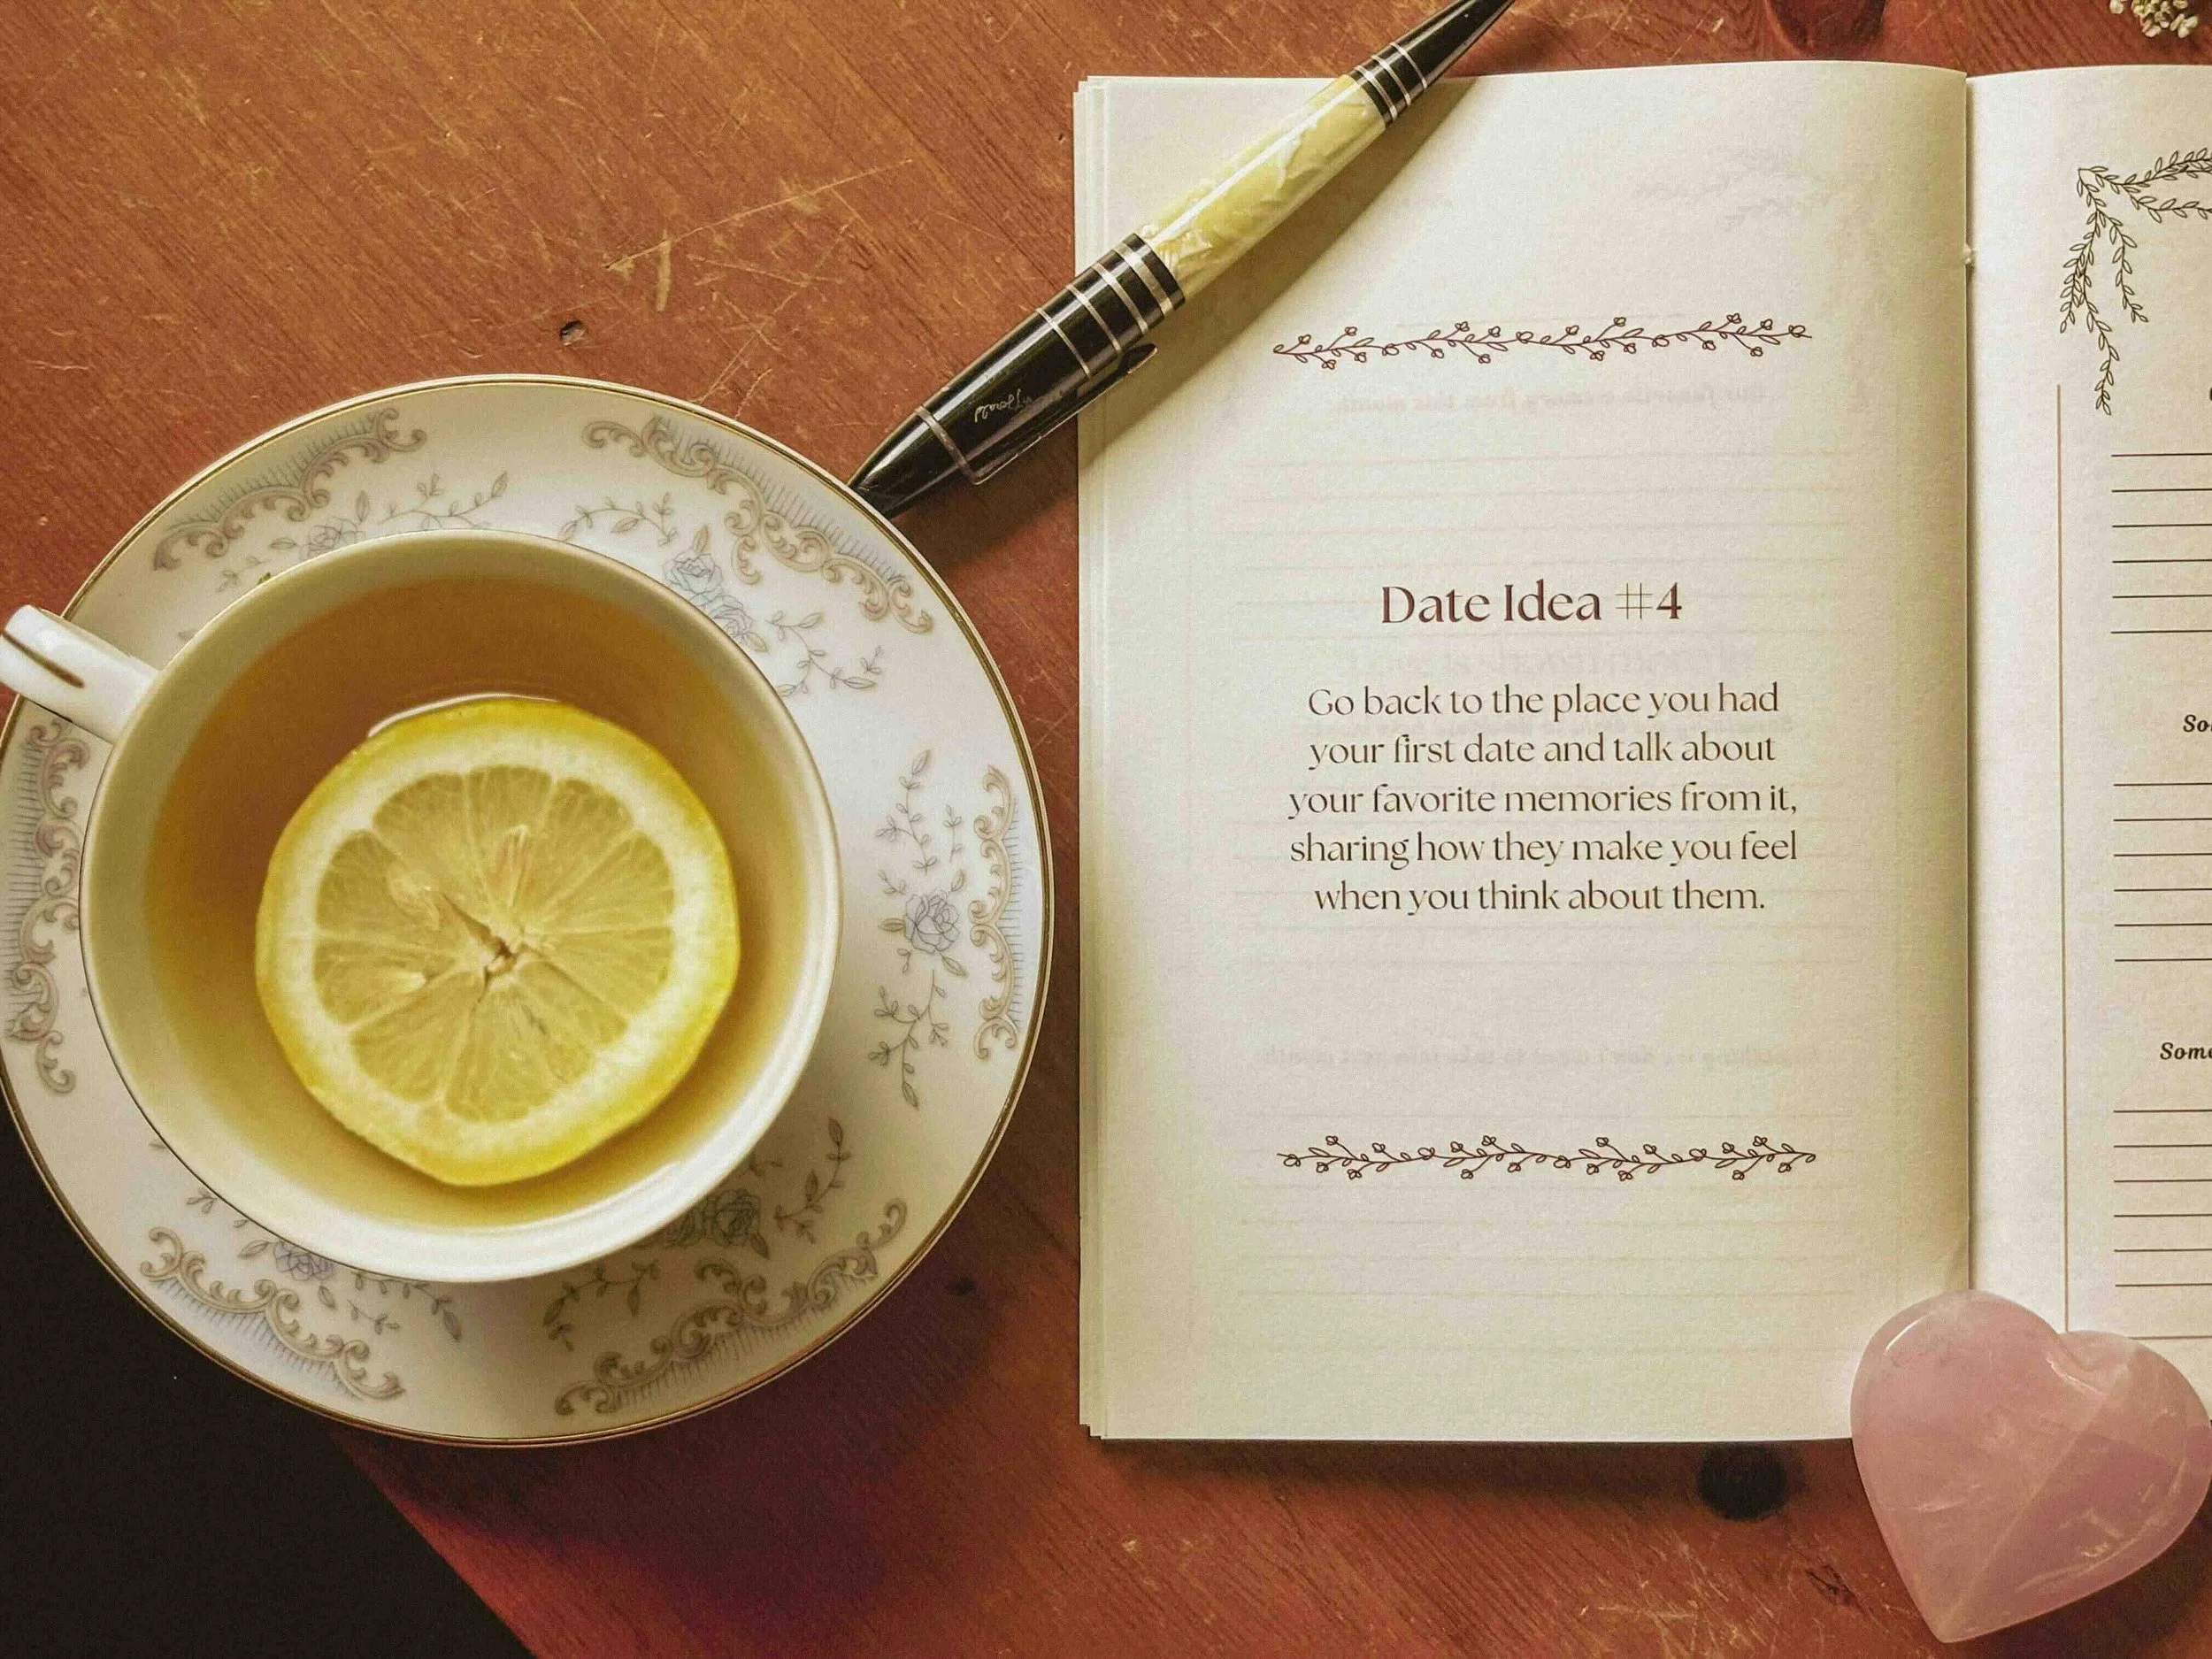 Date Idea #4
Go back to the place you had
your first date and talk about
your favorite memories from it,
sharing how they make you feel
when you think about them.